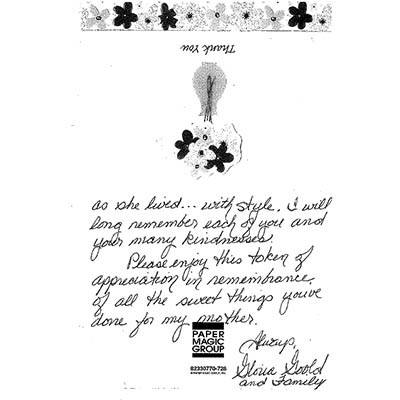 Thank You
as she lived... with style. I will
long remember each of you and
your many kindnesses.
Please enjoy this token of
appreciation in remembrance
of all the sweet things you've
done for my mother.
Always,
Gloria Goold
and Family
PAPER
MAGIC
GROUP
62330770-726